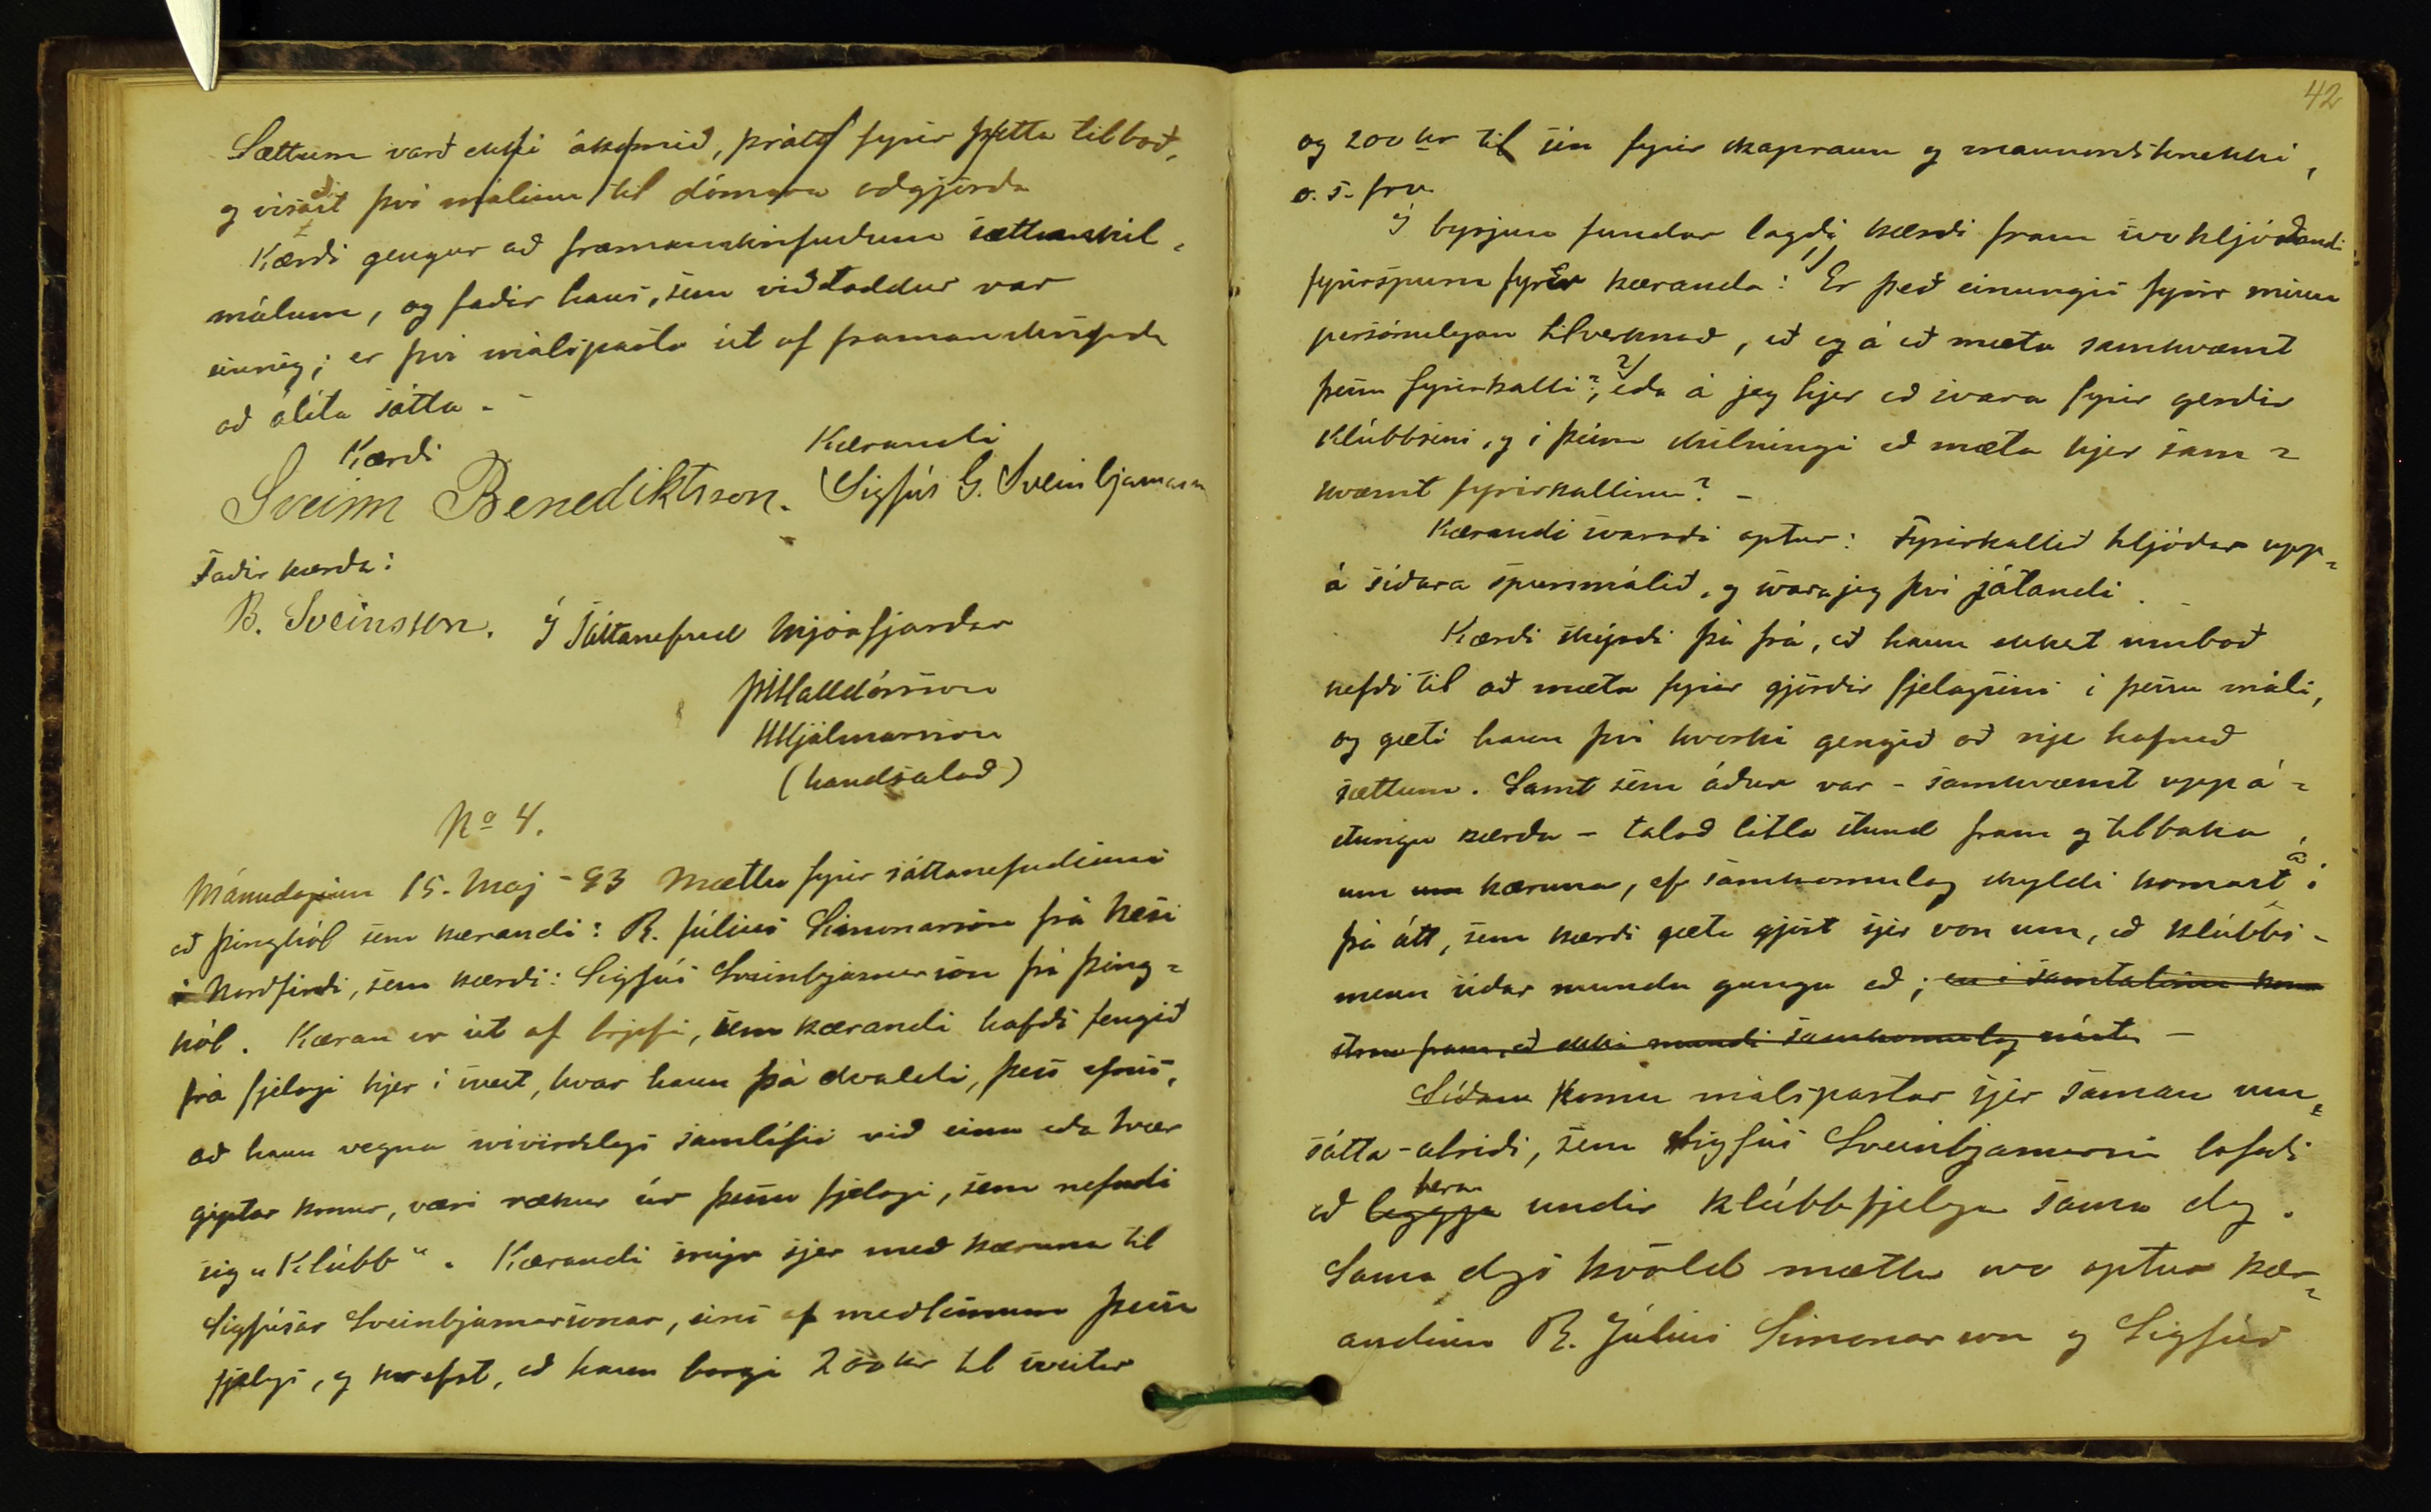 Sættum varð ekki ákomið, þrátt fyrir þetta tilboð,
og vísaðist því málinu til dómara aðgjörða
Kærði gengur að framanskrifuðum sættaskil-
málum, og faðir hans, sem viðstaddur var
einnig; er því málsparta út af framanskrifuðu
að álíta sátta. -
Kærði
Kærandi
Sveinn Benediktsson. Sigfús G. Sveinbjarnarson
Faðir kærða:
B. Sveinsson.
Í Sáttanefnd Mjóafjarðar
ÞHalldórsson
HHjálmarsson
(handsalað)
No 4.
Mánudaginn 15. Maj -93 Mættu fyrir sáttanefndinni
að Þinghól sem kærandi: R. Júlíus Símonarson frá Nesi
í Norðfirði, sem kærði: Sigfús Sveinbjarnarson frá Þing-
hól. Kæran er út af brjefi, sem kærandi hafði fengið
frá fjelagi hjer í sveit, hvar hann þá dvaldi, þess efnis,
að hann vegna svívirðilegs samlífis við eina eða tvær
giptar konur, væri rækur úr þessu fjelagi, sem nefndi
sig "Klúbb". Kærandi snýr sjer með kæruna til
Sigfúsar Sveinbjarnarsonar, eins af meðlimum þessa
fjelags, og krefst, að hann borgi 200 kr til sveitar
42
og 200 kr til sín fyrir skapraun og mannorðshnekki,
o. s. frv.
Í byrjun fundar lagði kærði fram svohljóðandi
fyrirspurn fyrir kæranda: 1/ Er það einungis fyrir minn
persónulegan tilverknað, að eg á að mæta samkvæmt
þessu fyrirkalli?, 2/ eða á jeg hjer að svara fyrir gerðir
Klúbbsins, og í þeim skilningi að mæta hjer sam-
kvæmt fyrirkallinu? -
Kærandi svaraði aptur: Fyrirkallið hljóðar upp-
á síðara spursmálið, og svara jeg því játandi. -
Kærði skýrði þá frá, að hann ekkert umboð
hefði til að mæta fyrir gjörðir fjelagsins í þessu máli,
og gæti hann því hvorki gengið að nje hafnað
sættum. Samt sem áður var - samkvæmt uppá-
stungu kærða - talað litla stund fram og tilbaka
um um kæruna, ef samkomulag skyldi komast á í
þá átt, sem kærði gæti gjört sjer von um, að klúbbs-
menn síðar mundu ganga að; en í samtalinu kom
strax fram, að ekki mundi samkomulag nást -
Síðan komu málspartar sjer saman um
sátta-atriði, sem Sigfús Sveinbjarnarson lofaði
að leggja bera undir klúbbfjelaga sama dag.
Sama dags kvöld mættu svo aptur kær-
andinn R. Júlíus Símonarson og Sigfús